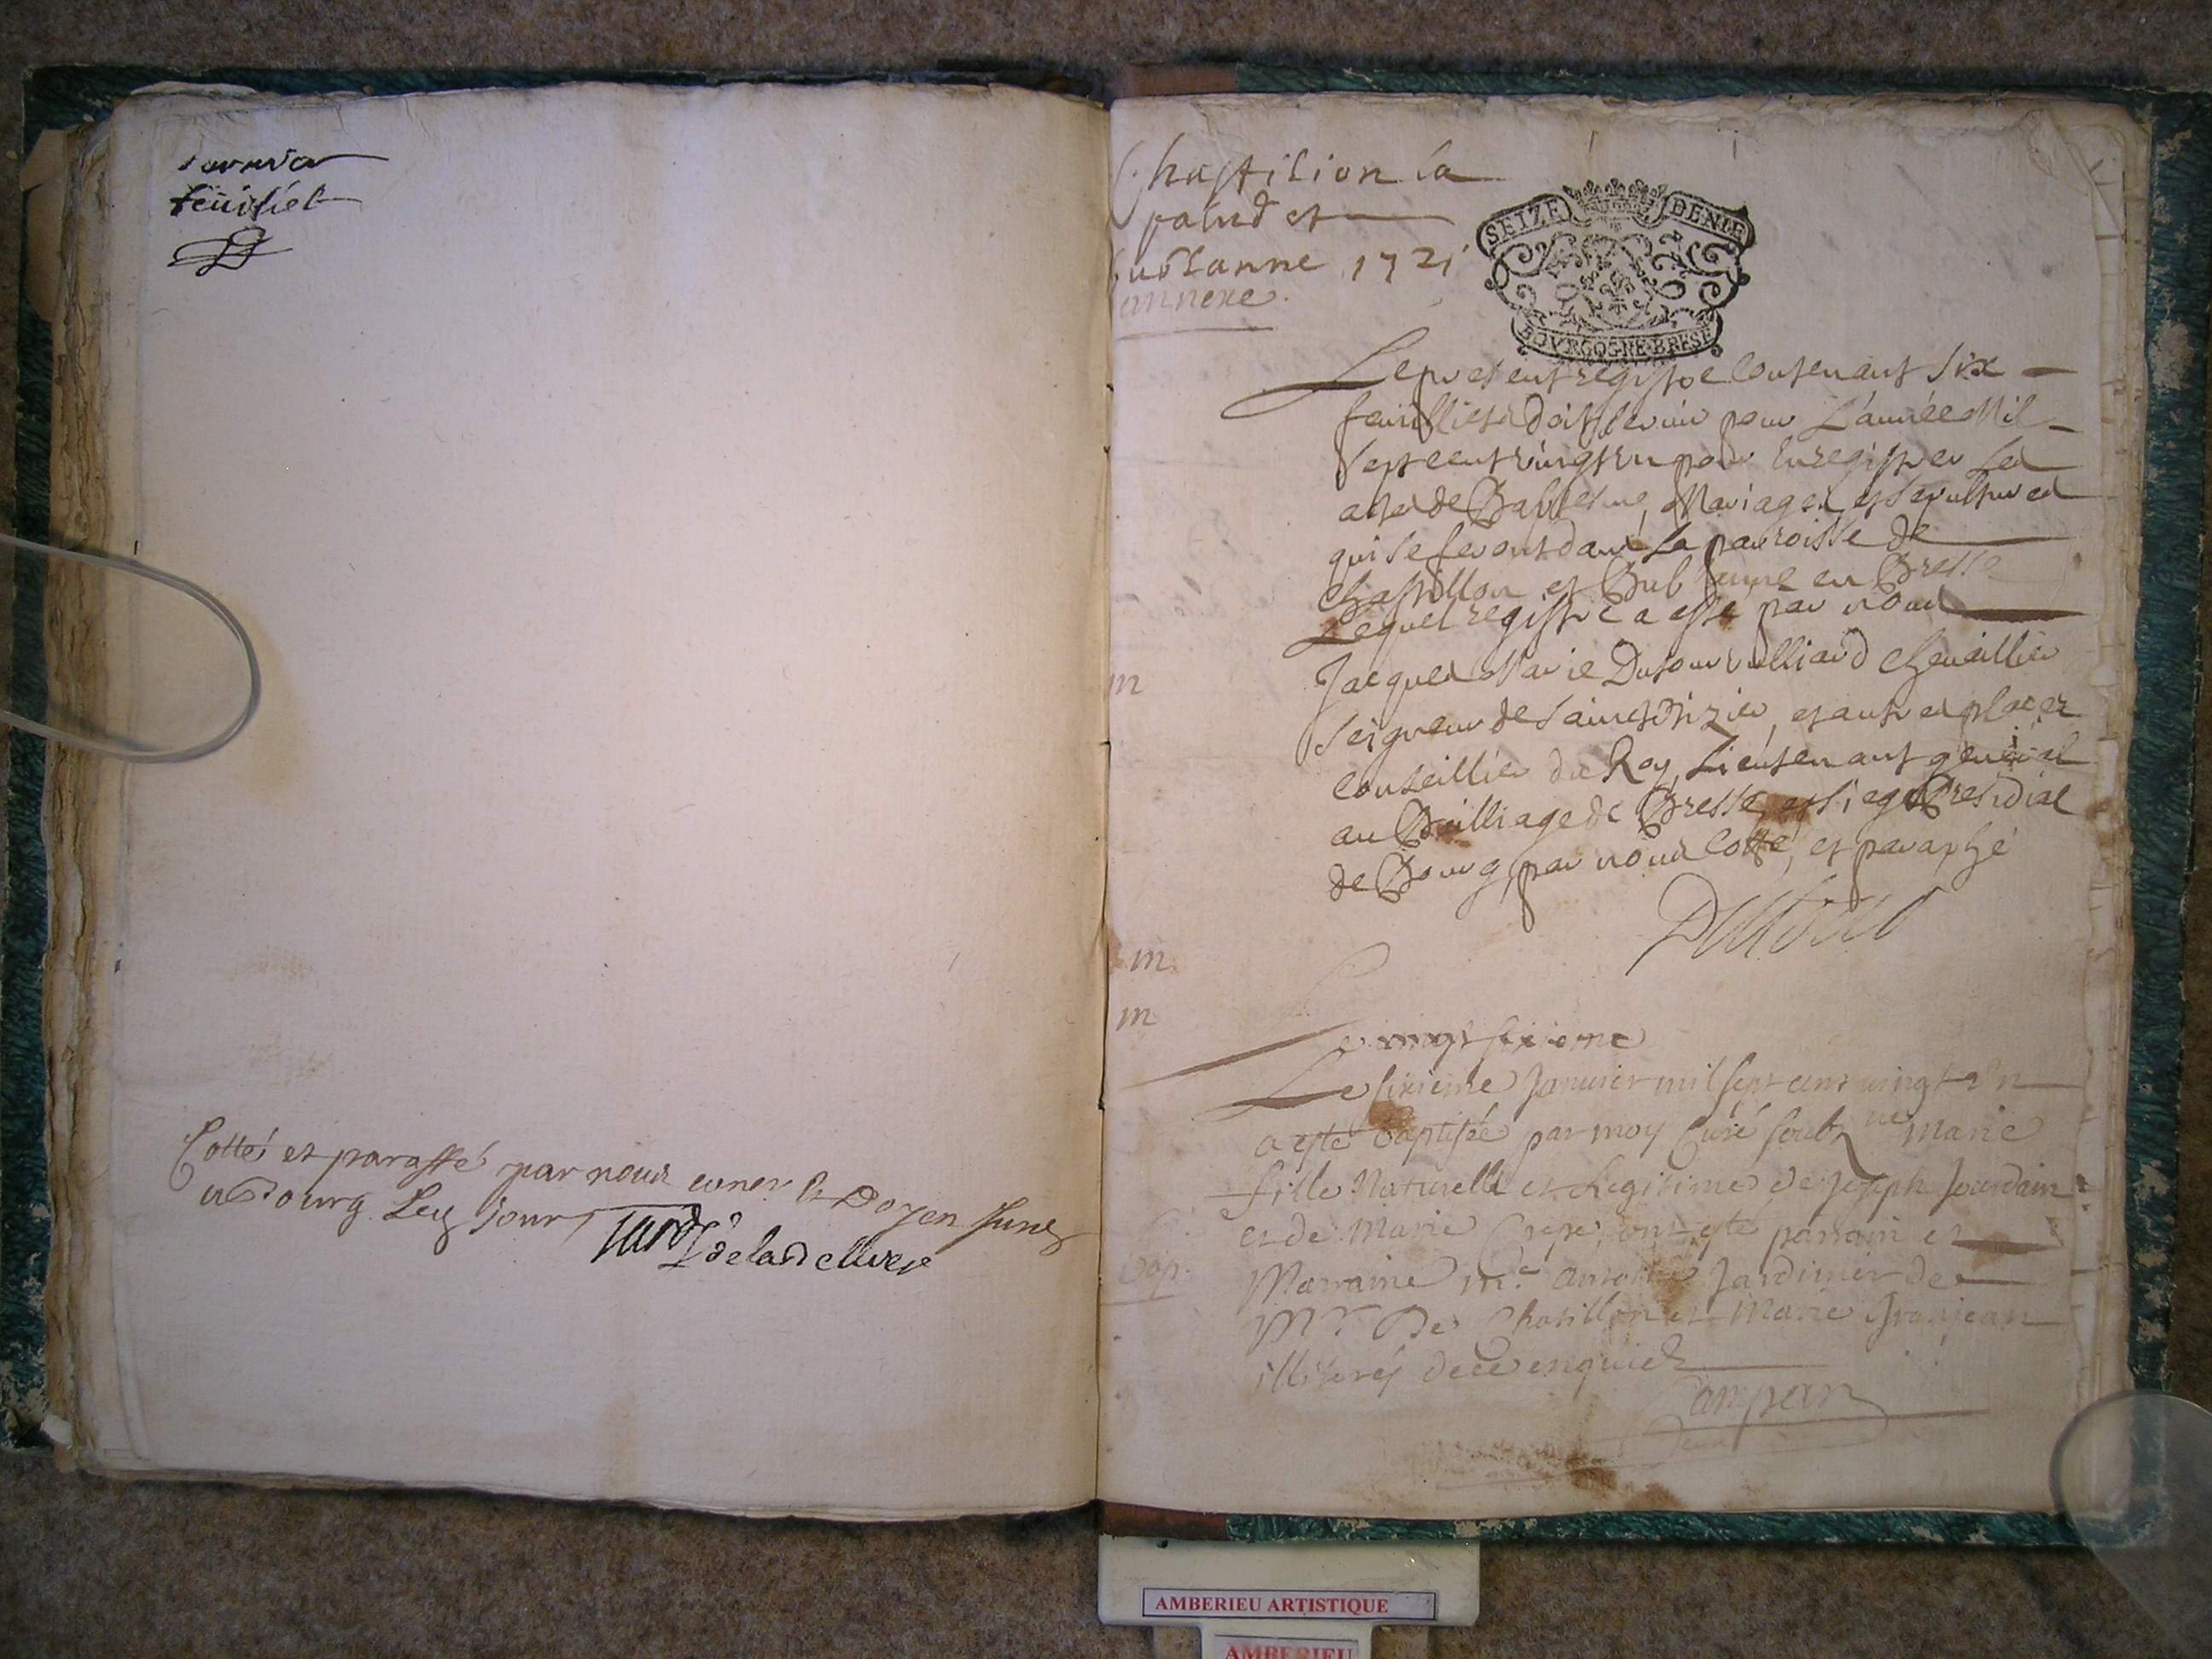 dernier
feüilliet
Cotté et paraffé par nous coner et Doyen
a Bourg Les jour
Chastilion la
palud et
Bublanne 1721
annexe
SEIZE DENIE
BOVRGOGNE·BRESE
Le present registre Contenant Six
feuilliets doit servir pour L'année Mil
Sept cent vingt un pour Enregistrer Les
actes de Baptesme, Mariages et sepultures
qui se feront dans La parroisse de
Chastillon et Bublanne en Bresse
Lequel registre a esté par nous
Jacques Marie Dutour vulliard chevaillier
Seigneur de Sainct Nizier, et autres places
Conseillier du Roy, Lieutenant general
au Bailliage de Bresse et siege Presidial
de Bourg par nous Cotté, et paraphé
Dutour
m
m
m
Le vingt sixieme
Le sixieme Janvier mil sept cent vingt un
a esté baptisée par moy Curé soubz né Marie
fille Naturelle et Legitime de Joseph Jourdain
et de Marie ont esté parrain et
Marraine me Antoine Jardinier de
Mr De Chatillon et Marie Granjean
illiterés de ce enquich
bap.
Campan
AMBERIEU ARTISTIQUE
AMBERIEU